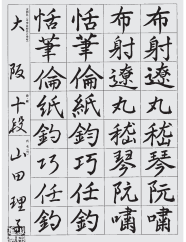 布射遼丸嵇琴阮嘯
布射遼丸嵇琴阮嘯
恬筆倫紙鈞巧任釣
恬筆倫紙鈞巧任釣
大阪十段山田理